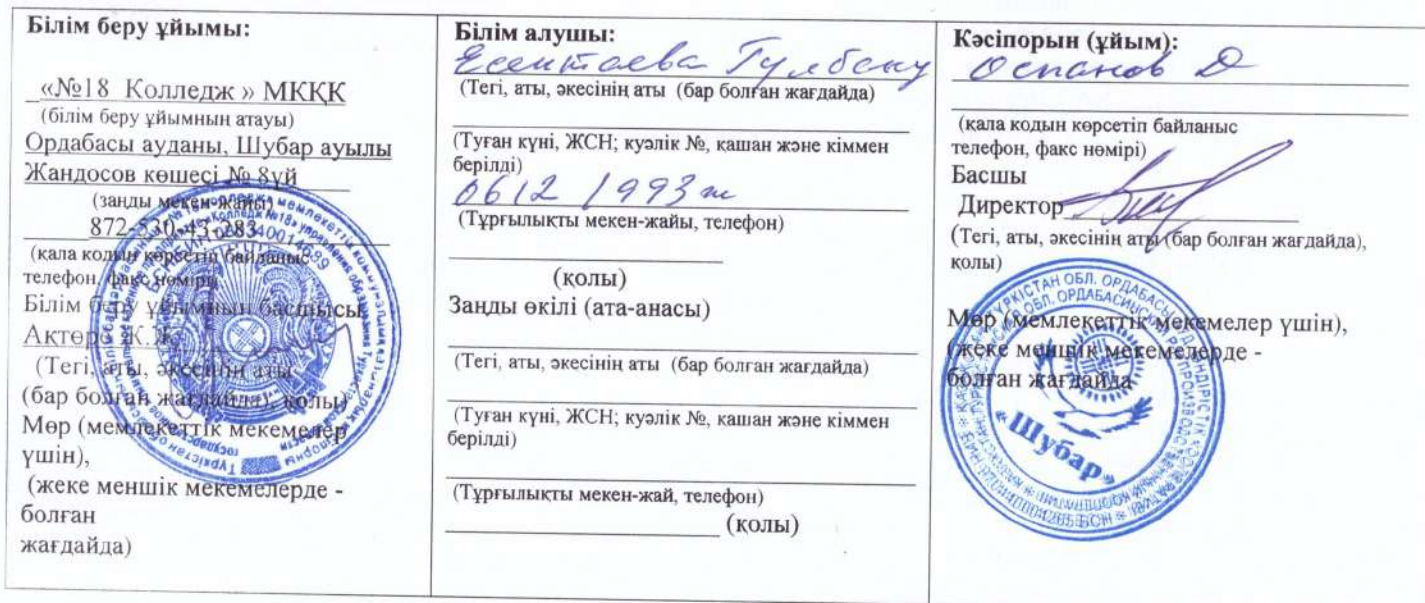 Білім беру ұйымы:
«№18 Колледж » МКҚК
(білім беру ұйымның атауы)
Ордабасы ауданы, Шубар ауылы
Жандосов көшесі № 8үй
(заңды мекен-жайы)
872-530-43-283
(қала кодын көрсетіп байланыс
телефон, факс нөмірі)
Білім беру ұйымның басшысы
Ақтөре Ж.Ж
(Тегі, аты, әкесінің аты
(бар болған жағдайда), қолы)
Мөр (мемлекеттік мекемелер
үшін),
(жеке меншік мекемелерде -
болған
жағдайда)
Білім алушы:
(Тегі, аты, әкесінің аты (бар болған жағдайда)
(Туған күні, ЖСН; куәлік №, қашан және кіммен
берілді)
0612 1993 ж
(Тұрғылықты мекен-жайы, телефон)
(қолы)
Заңды өкілі (ата-анасы)
(Тегі, аты, әкесінің аты (бар болған жағдайда)
(Туған күні, ЖСН; куәлік №, қашан және кіммен
берілді)
(Тұрғылықты мекен-жай, телефон)
(қолы)
Кәсіпорын (ұйым):
Оспанов Д
(қала кодын көрсетіп байланыс
телефон, факс нөмірі)
Басшы
Директор
(Тегі, аты, әкесінің аты (бар болған жағдайда),
қолы)
Мөр (мемлекеттік мекемелер үшін),
(жеке меншік мекемелерде -
болған жағдайда
«Шубар»